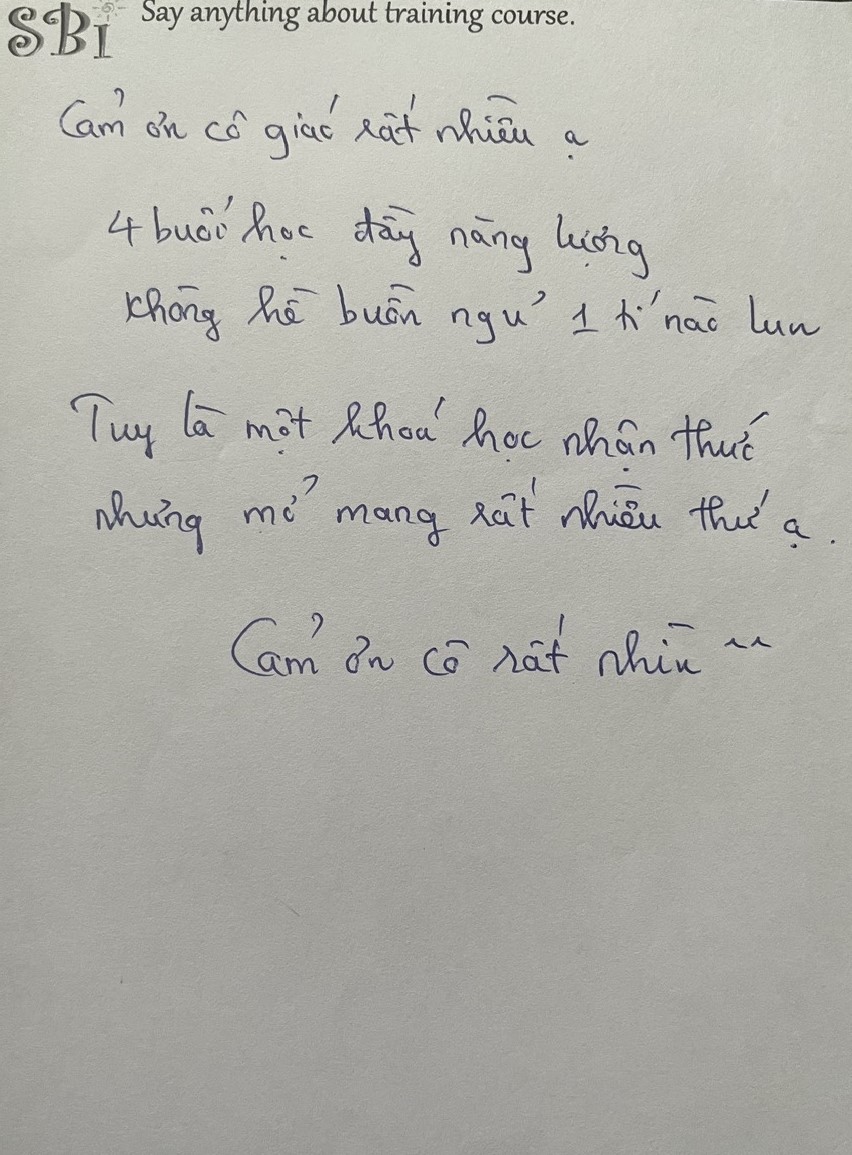 SBI Say anything about training course.
Cảm ơn cô giáo rất nhiều ạ
4 buổi học đầy năng lượng
không hề buồn ngủ 1 tí nào lun
Tuy là một khoá học nhận thức
nhưng mở mang rất nhiều thứ ạ.
Cảm ơn cô rất nhìu ^^